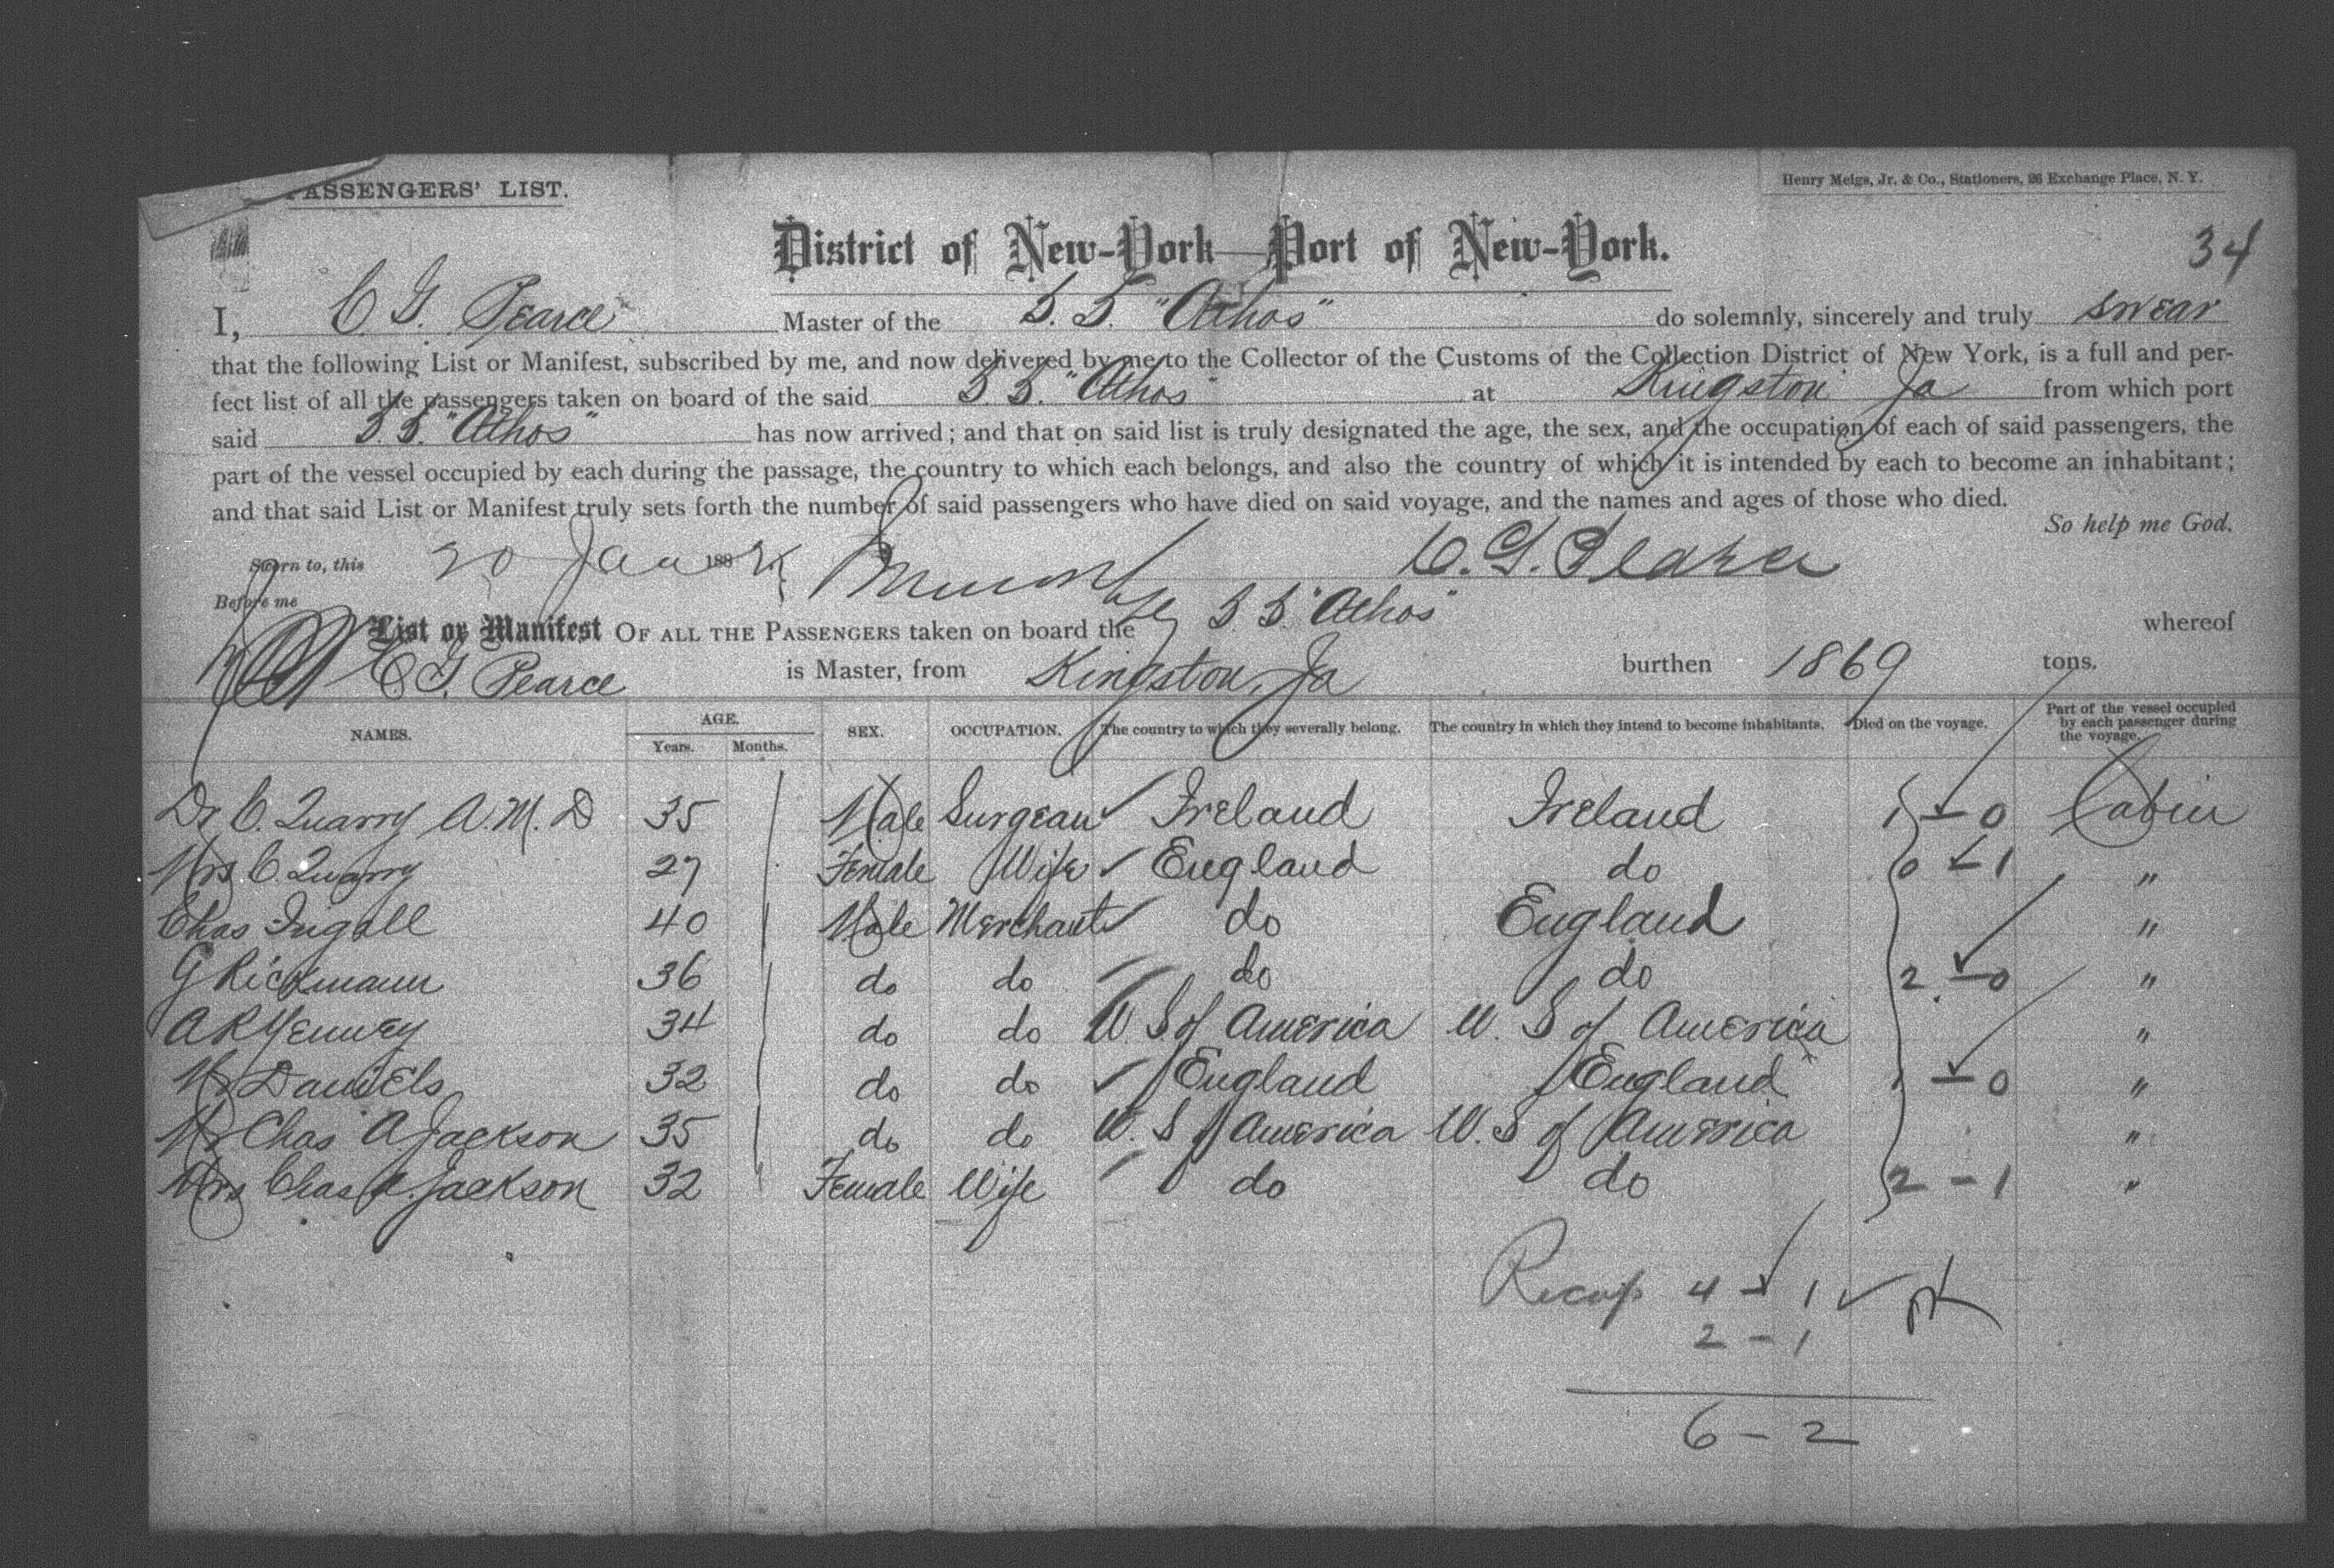 PASSENGERS' LIST.
Henry Meigs, Jr. & Co., Stationers, 26 Exchange Place, N. Y.
District of New-York—Port of New-York.
34
I, C G. Pearce Master of the S. S. "Athos" do solemnly, sincerely and truly swear
that the following List or Manifest, subscribed by me, and now delivered by me to the Collector of the Customs of the Collection District of New York, is a full and per-
fect list of all the passengers taken on board of the said S. S. "Athos" at Kingston Ja from which port
said S. S. "Athos" has now arrived; and that on said list is truly designated the age, the sex, and the occupation of each of said passengers, the
part of the vessel occupied by each during the passage, the country to which each belongs, and also the country of which it is intended by each to become an inhabitant;
and that said List or Manifest truly sets forth the number of said passengers who have died on said voyage, and the names and ages of those who died.
So help me God.
Sworn to, this 20 Jan 188
C. G. Pearce
Before me
List or Manifest OF ALL THE PASSENGERS taken on board the S S "Athos" whereof
C G. Pearce is Master, from Kingston, Ja burthen 1869 tons.
NAMES. AGE. Years. Months. SEX. OCCUPATION. The country to which they severally belong. The country in which they intend to become inhabitants. Died on the voyage. Part of the vessel occupied by each passenger during the voyage.
Dr C. Quarry A.M.D 35 Male Surgeon Ireland Ireland 1 - 0 Cabin
Mrs C. Quarry 27 Female Wife England do 0 - 1 "
Chas Ingall 40 Male Merchant do England "
G Rickmann 36 do do do do 2 - 0 "
A R Yenney 34 do do U. S. of America U. S of America "
Mr Daniels 32 do do England England 1 - 0 "
Mr Chas A Jackson 35 do do U. S of America U. S of America "
Mrs Chas A. Jackson 32 Female Wife do do 2 - 1 "
Recap 4 - 1
2 - 1
6 - 2